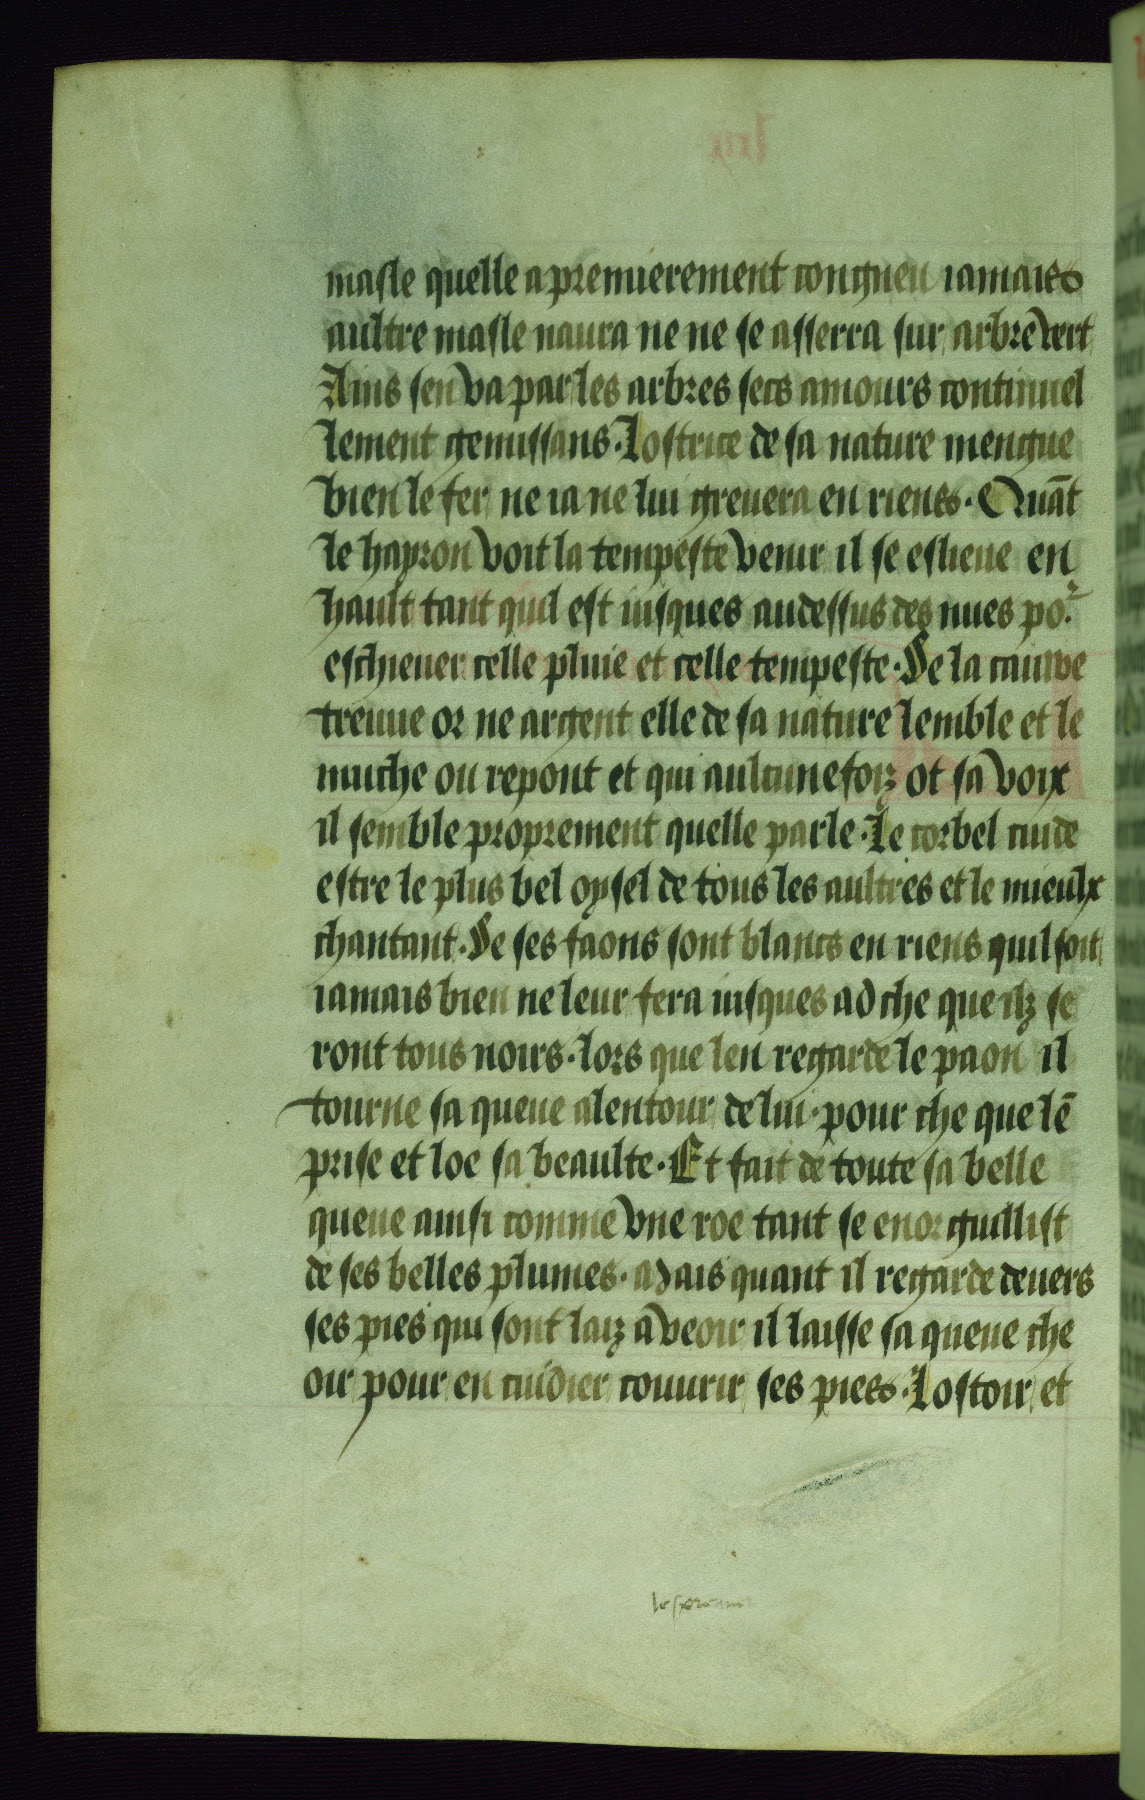 masle quelle a premierement congneu iamais
aultre masle naura ne ne se asserra sur arbre vert
Ains sen va par les arbres secs amours continuel
lement gemissans. Lostrice de sa nature mengue
bien le fer ne ia ne lui greuera en riens. Quāt
le hayron voit la tempeste venir il se eslieue en
hault tant quil est iusques audessus des nues po.ʳ
eschieuer celle pluie et celle tempeste. Se la cauwe
treuue or ne argent elle de sa nature lemble et le
muche ou repont et qui aulcunefoiz ot sa voix
il semble proprement quelle parle. Le corbel cuide
estre le plus bel oysel de tous les aultres et le mieulx
chantant. Se ses faons sont blancs en riens quil soit
iamais bien ne leur fera iusques ad che que ilz se
ront tous noirs. lors que len regarde le paon il
tourne sa queue alentour de lui. pour che que lē
prise et loe sa beaulte. Et fait de toute sa belle
queue ainsi comme vne roe tant se enorguillist
de ses belles plumes. Mais quant il regarde deuers
ses pies qui sont laiz a veoir il laisse sa queue che
oir pour en cuidier couurir ses pies. Lostoir et